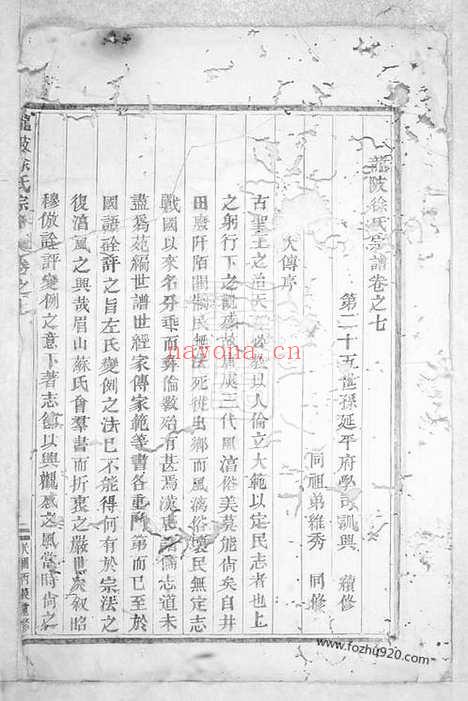 龍陂徐氏宗譜卷之七
第二十五世孫延平府學訓興 續修
同祖弟維秀 同修
大傳序
古聖王之治天 以人倫立大範以定民志者也上
之躬行下之觀感故唐虞三代風淳俗美莫能尚矣自井
田廢阡陌開彝民無法死徙出鄉而風漓俗壞民無定志
戰國以來名分乖而彝倫斁殆有甚焉漢 儒志道未
盡爲苑編世譜世經家傳家範等書各重門第而已至於
國語銓評之旨左氏變例之法已不能得何有於宗法之
復淳風之興哉眉山蘇氏會羣書而折衷之嚴世次叙昭
穆倣詮評變例之意下著志篇以興觀感之風當時尚之
龍陂徐氏宗譜 卷之七
民國丙 重修
nayona.cn
www.fozhu920.com